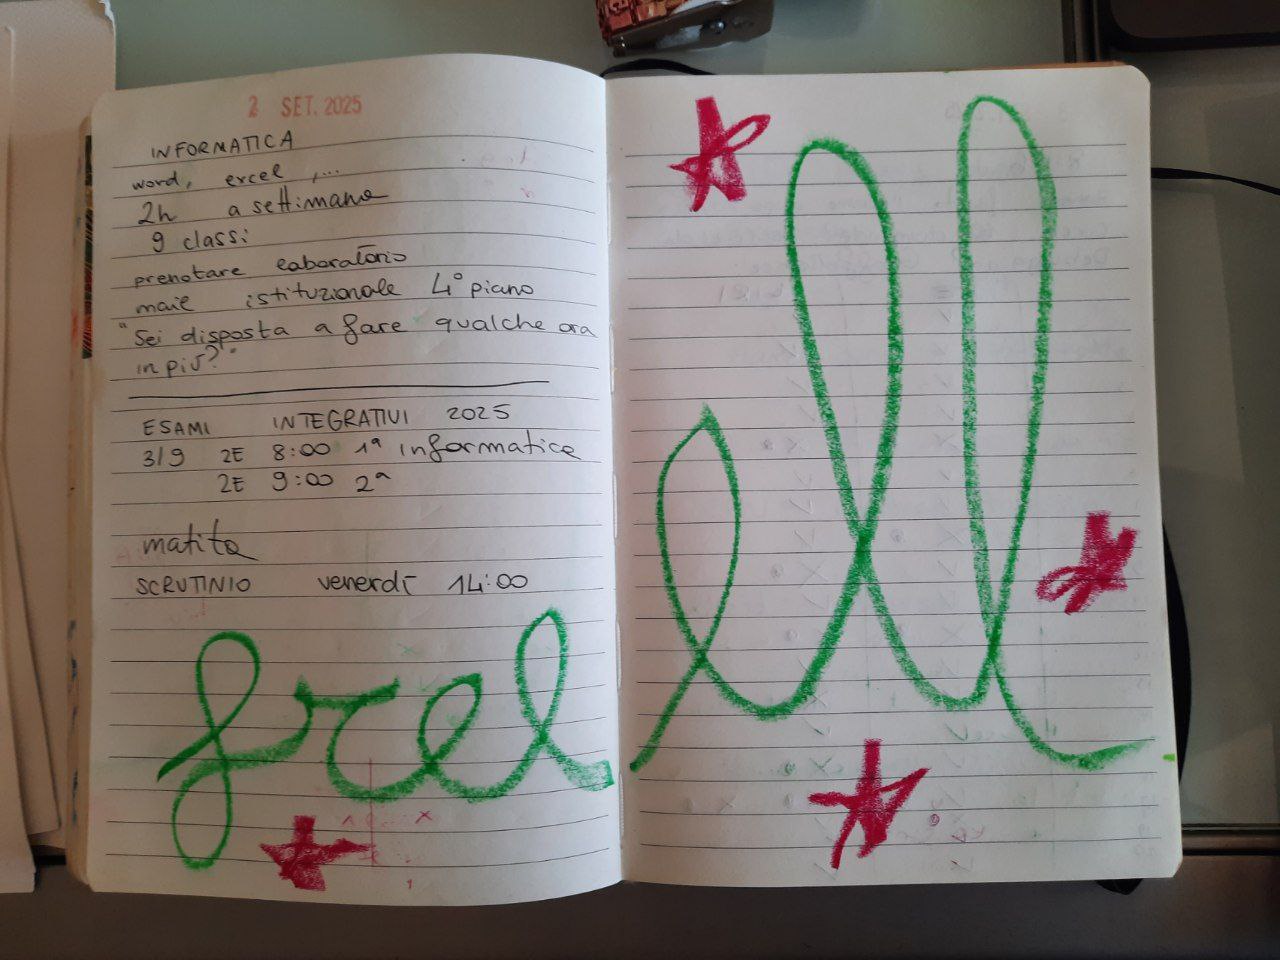 2 SET. 2025
INFORMATICA
word, excel ,...
2h a settimana
9 classi
prenotare laboratorio
mail istituzionale 4° piano
"Sei disposta a fare qualche ora
in più?"
ESAMI INTEGRATIVI 2025
3/9 2E 8:00 1ª informatica
2E 9:00 2ª
matita
SCRUTINIO venerdì 14:00